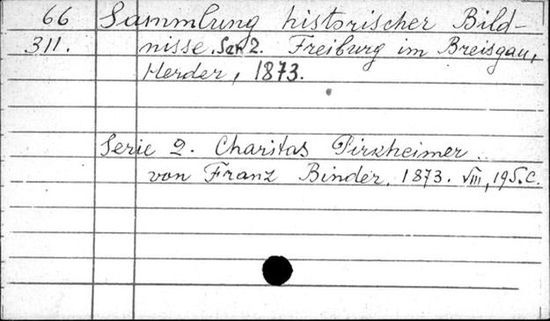 66 Sammlung historischer Bild-
311. nisse. Ser. 2. Freiburg im Breisgau,
Herder, 1873.
Serie 2. Charitas Pirkheimer
von Franz Binder. 1873. VIII, 195. C.